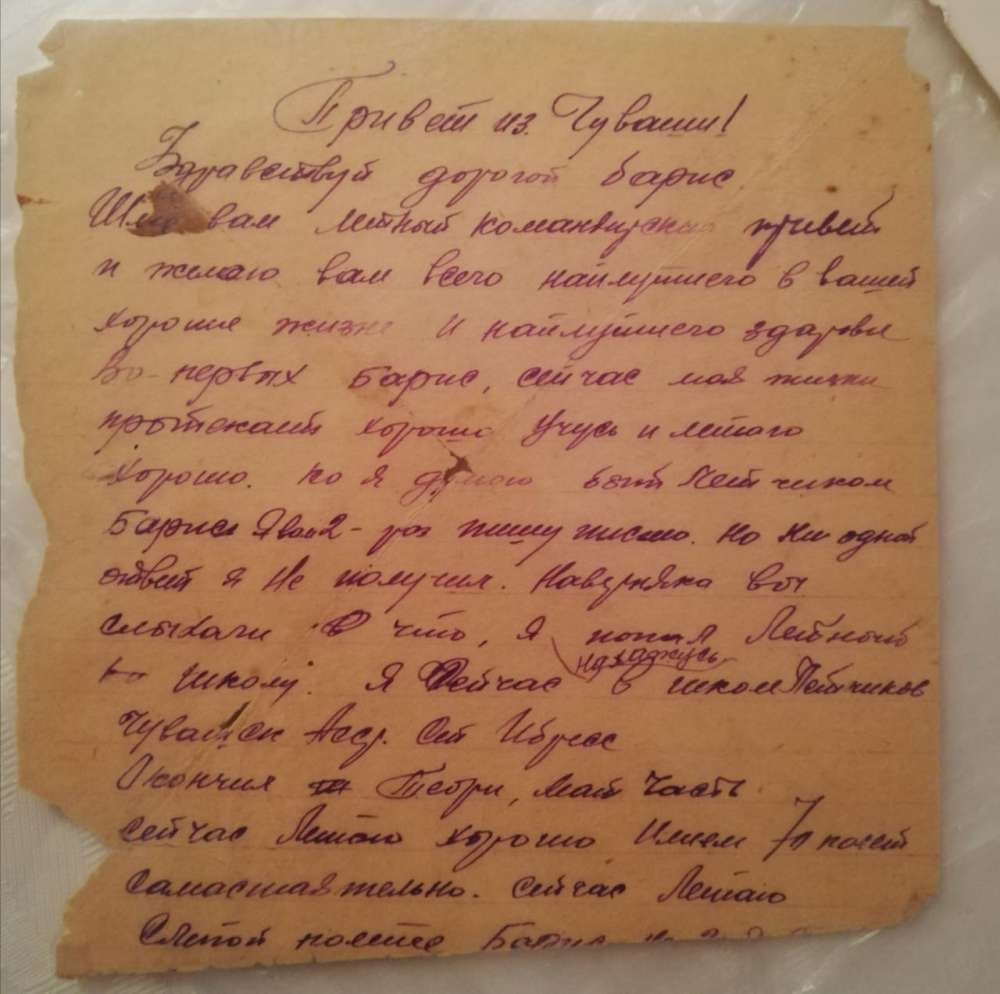 Привет из Чуваши!
Здравствуй дорогой Барис.
Шлю вам летный командирский привет
и желаю вам всего найлутшего в вашей
хорошие жизне и найлутшего здаровие
Во-первых Барис, сейчас моя жизнь
протекает хорошо Учусь и летаю
хорошо. но я думаю быть Летчиком
Барис Я вам 2-раз пишу писмо. Но ни одной
ответ я Не получил. Наверняка вы
слыхали в что, я попал Летный
школу. Я Сейчас нахаджусь в школе Летчиков
Чувашск Асср. Ст Ибресс
Окончил Теори, мат Часть
сейчас Летаю хорошо Имеем 71 полет
самастаятельно. Сейчас Летаю
Слепой полете Барис